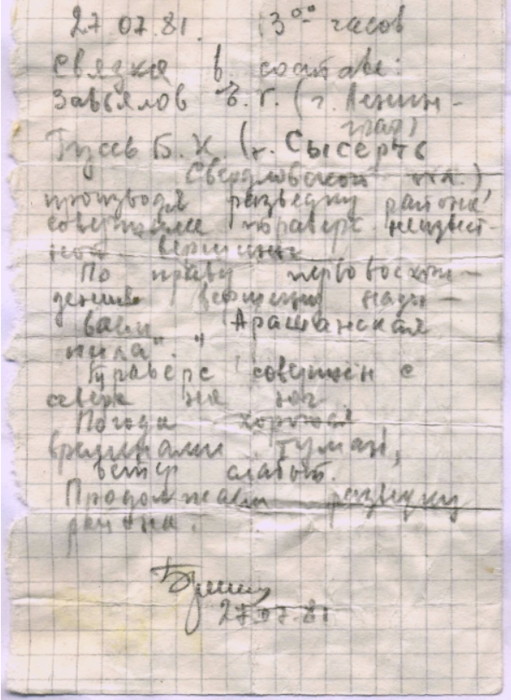 27.07.81. 13⁰⁰ часов
Связка в составе:
Завьялов В. Г. (г. Ленин-
град)
Гусь Б. К (г. Сысерть
Свердловской обл.)
производя разведку района,
совершили траверс неизвест-
ной вершины
По праву первовосхож-
дения вершину наз-
вали "Арашанская
пила".
Траверс совершен с
севера на юг.
Погода хорошая
временами туман,
ветер слабый.
Продолжаем разведку
района.
27.07.81